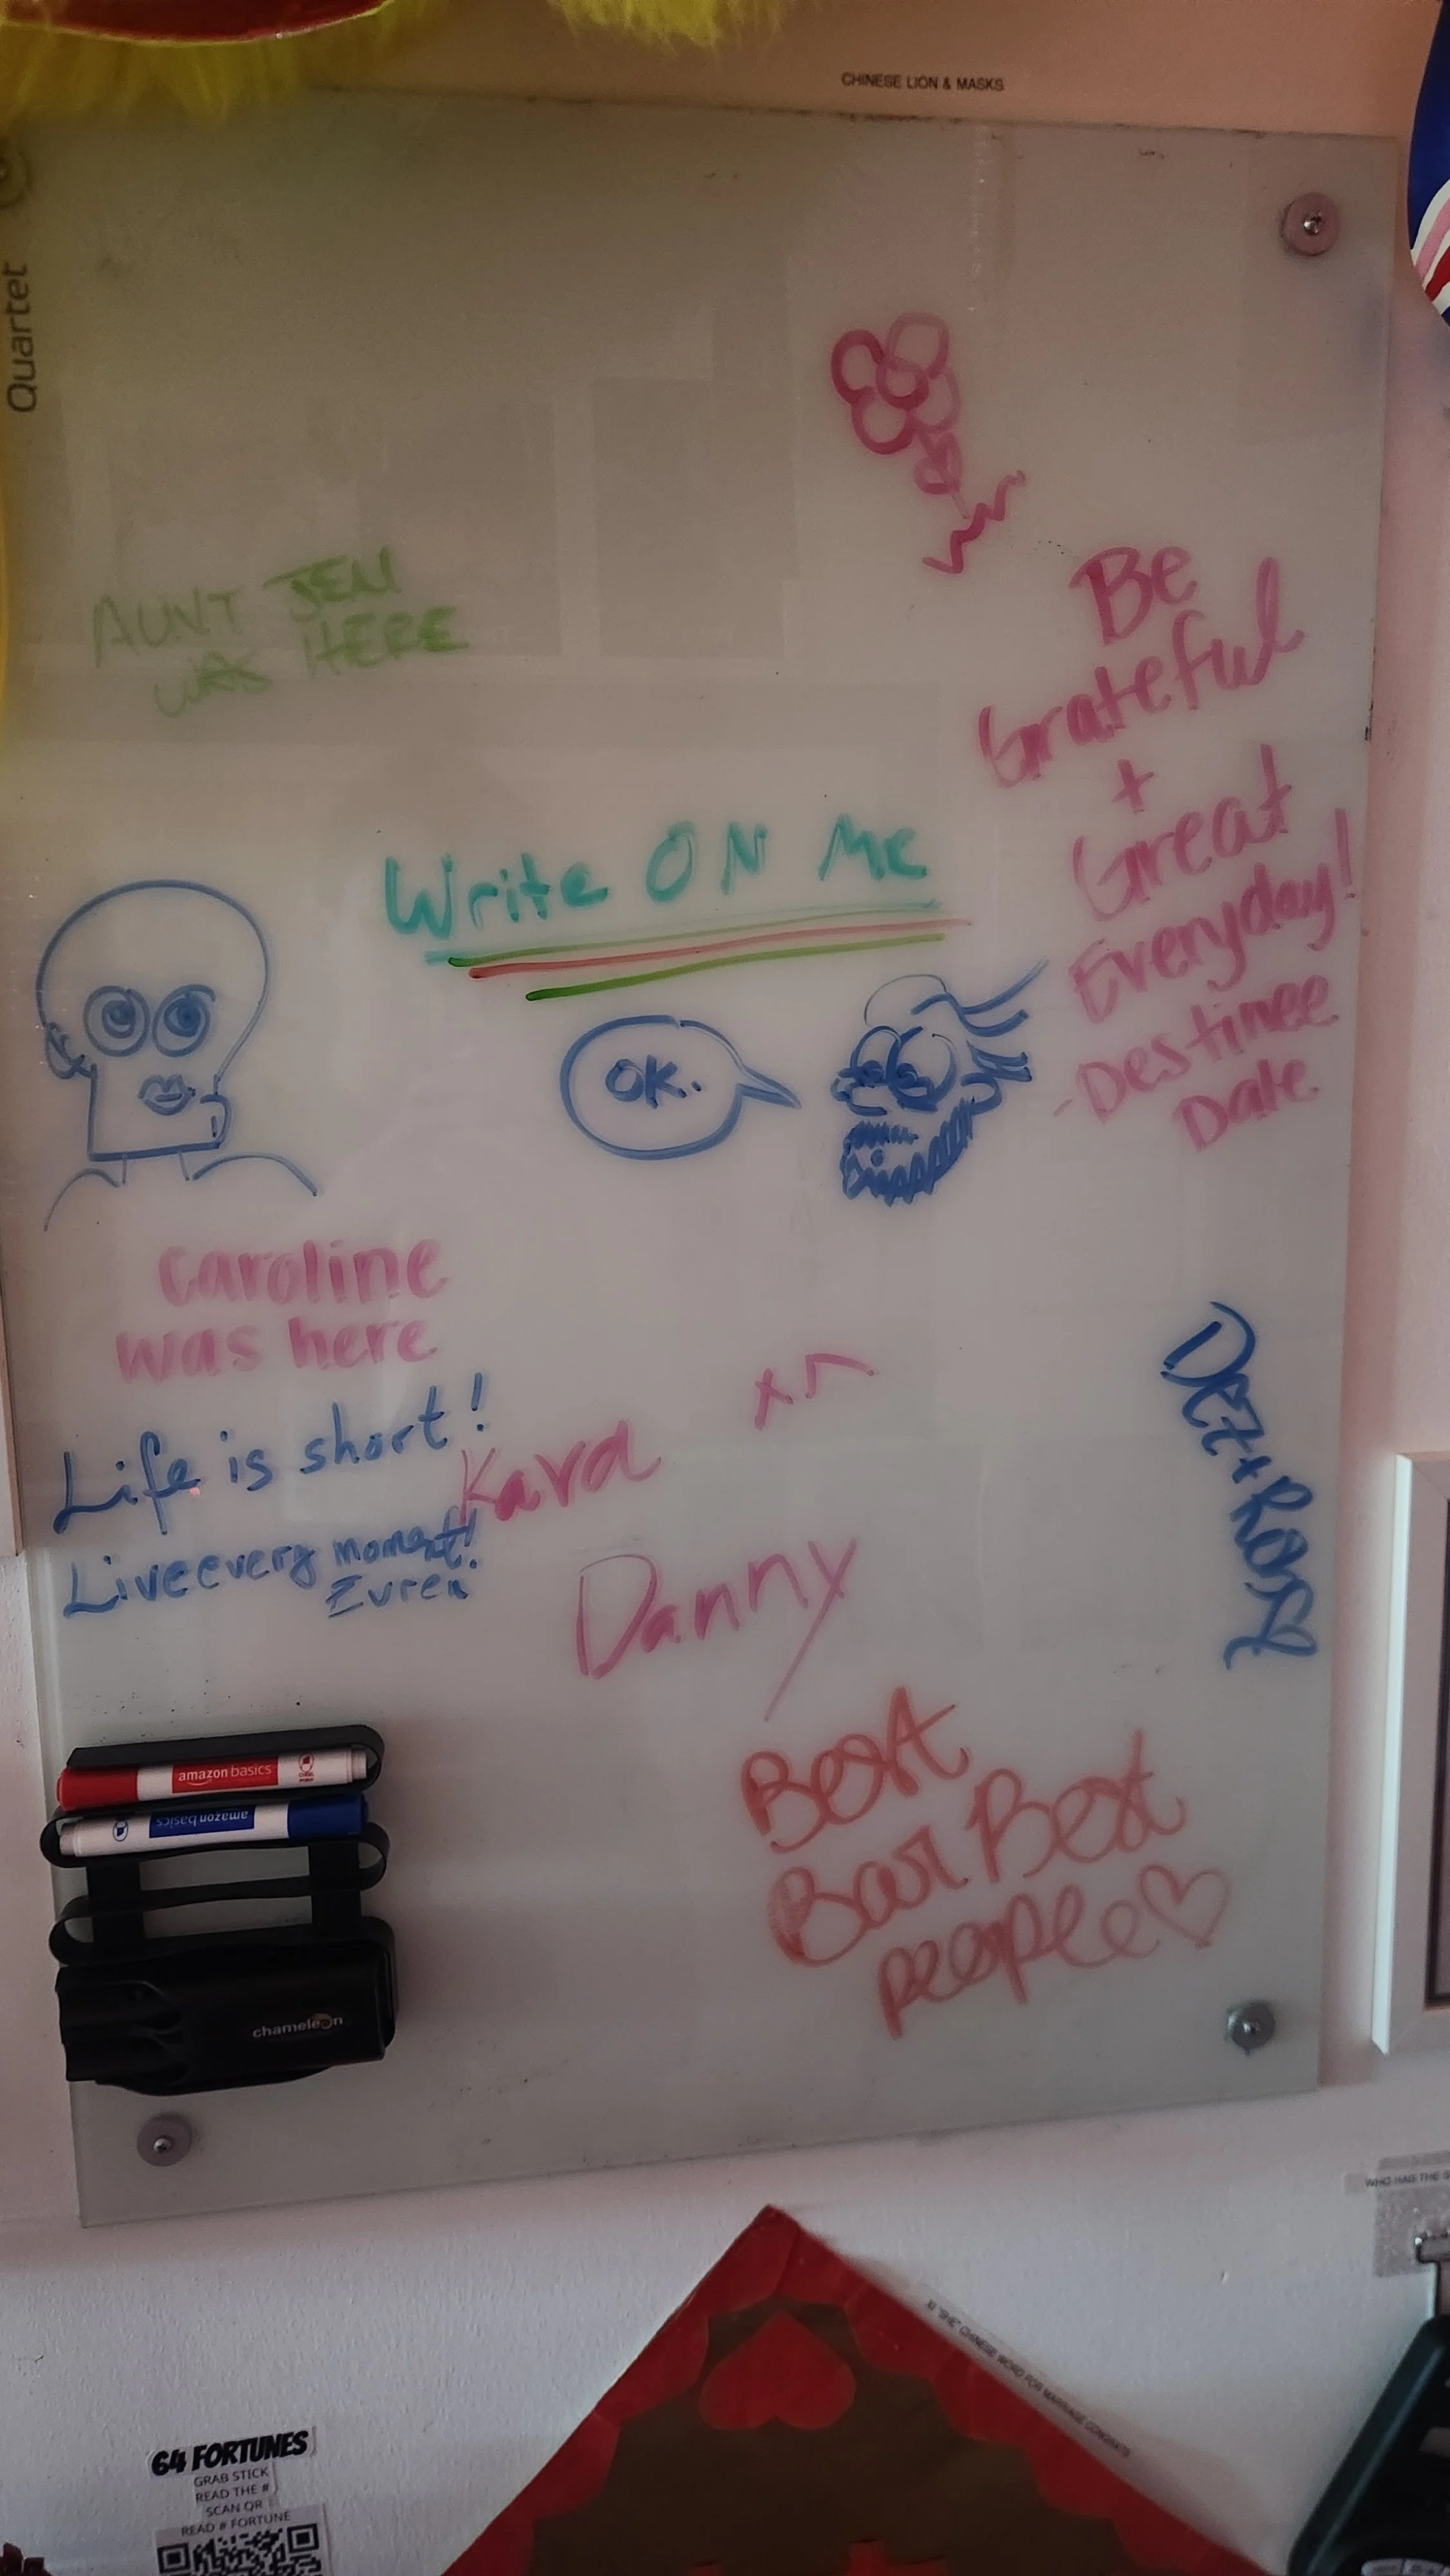 CHINESE LION & MASKS
Quartet
AUNT JEN
WAS HERE
Be
Grateful
+
Great
Everyday!
-Destinee
Date
Write ON Me
OK.
Caroline
was here
Life is short!
Live every moment!
Evren
Kara
Danny
Dez + Ross
Best
Bar Best
people
amazon basics
amazon basics
chameleon
WHO HAS THE
"SHE" CHINESE WORD FOR MARRIAGE CONGRATS
64 FORTUNES
GRAB STICK
READ THE #
SCAN QR
READ # FORTUNE